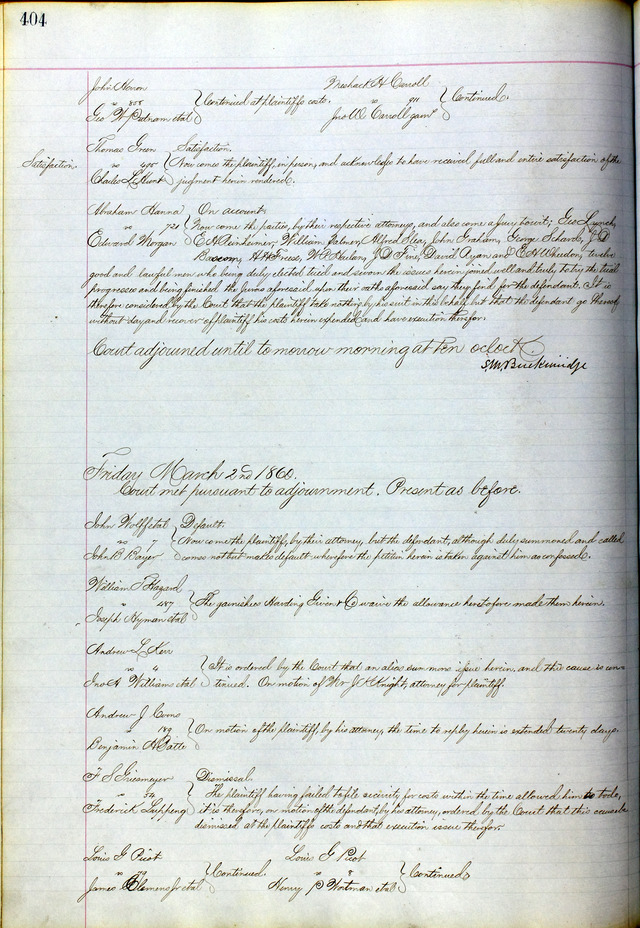 404
John Heron Meshack H Carroll
vs 808 Continued at plaintiffs costs. vs 911 Continued.
Geo W Putnam etal Jno W Carroll gam
Thomas Green Satisfaction.
Satisfaction. vs 405 Now comes the plaintiff, in person, and acknowledges to have received full and entire satisfaction of the
Charles L Hunt judgment herein rendered.
Abraham Hanna On account.
vs 721 Now come the parties, by their respective attorneys, and also come a jury towit; Geo Lynch,
Edward Morgan William Palmer, Alfred John Graham, George Schard, J D
Bascom, H A Fress, J D Fine, David Ryan and E A Wheedon, twelve
good and lawful men who being duly elected tried and sworn the issues herein joined well and truly to try the trial
progresses and being finished the jurors aforesaid upon their oaths aforesaid say they find for the defendant. It is
therefore considered by the Court that the plaintiff take nothing by his suit in this behalf but that the defendant go thereof
without day and recover of plaintiff his costs herein expended and have execution therefor.
Court adjourned until tomorrow morning at ten oclock
S. M. Breckinridge
Friday March 2nd 1860.
Court met pursuant to adjournment. Present as before.
John Wolff etal Default.
vs 7 Now come the plaintiff, by their attorney, but the defendant, although duly summoned and called
John B Boyer comes not but makes default wherefore the petition herein is taken against him as confessed.
William T Hazard
" 487 The garnishees Harding Given & Co waive the allowance heretofore made them herein.
Joseph Hyman etal
Andrew L Kerr
vs 4 It is ordered by the Court that an alias summons issue herein, and this cause is con
Jno H Williams etal tinued. On motion of Mr J K Knight, attorney for plaintiff.
Andrew J Coons
" 189 On motion of the plaintiff, by his attorney, the time to reply herein is extended twenty days.
Benjamin H Batte
F S Griesmeyer Dismissal.
" 34 The plaintiff having failed to file security for costs within the time allowed him to to do,
Frederick it is therefore, on motion of the defendant, by his attorney, ordered by the Court that this cause be
dismissed at the plaintiffs costs and that execution issue therefor.
Louis G Picot Louis G Picot
vs Continued. vs 8 Continued
James Clemens Jr etal Henry P Wortman etal